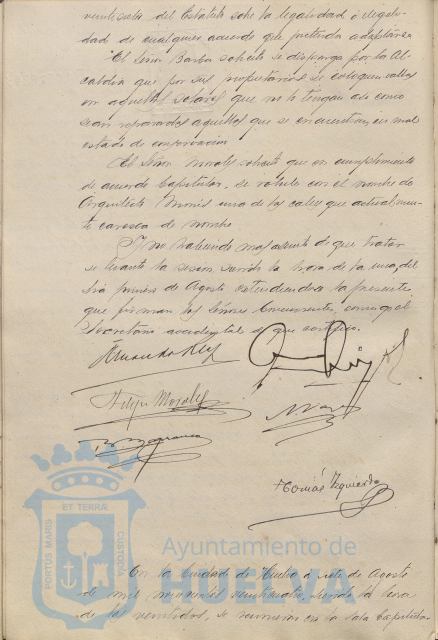 veintiseis del Estatuto sobre la legalidad o ilegali-
dad de cualquier acuerdo que pretenda adoptarse
El Señor Barba solicita se disponga por la Al-
caldia que por sus propietarios se coloquen vallas
en aquellos solares que no lo tengan asi como
sean reparados aquellos que se encuentren en mal
estado de conservacion
El Señor Morales solicita que en cumplimiento
de acuerdo Capitular, se rotule con el nombre de
Arquitecto Monis una de las calles que actualmen-
te carezca de nombre
Y no habiendo mas asunto de que tratar
se levanta la sesion siendo la hora de la una, del
dia primero de Agosto extendiendose la presente
que firman los Señores Concurrentes, conmigo el
Secretario accidental de que certifico.
Felipe Morales
Tomás Izquierdo
PORTUS MARIS ET TERRAE CUSTODIA
Ayuntamiento de
HUELVA
En la Ciudad de Huelva a siete de Agosto
de mil novecientos veinticuatro, siendo la hora
de las veintidos, se reunieron en la Sala Capitular